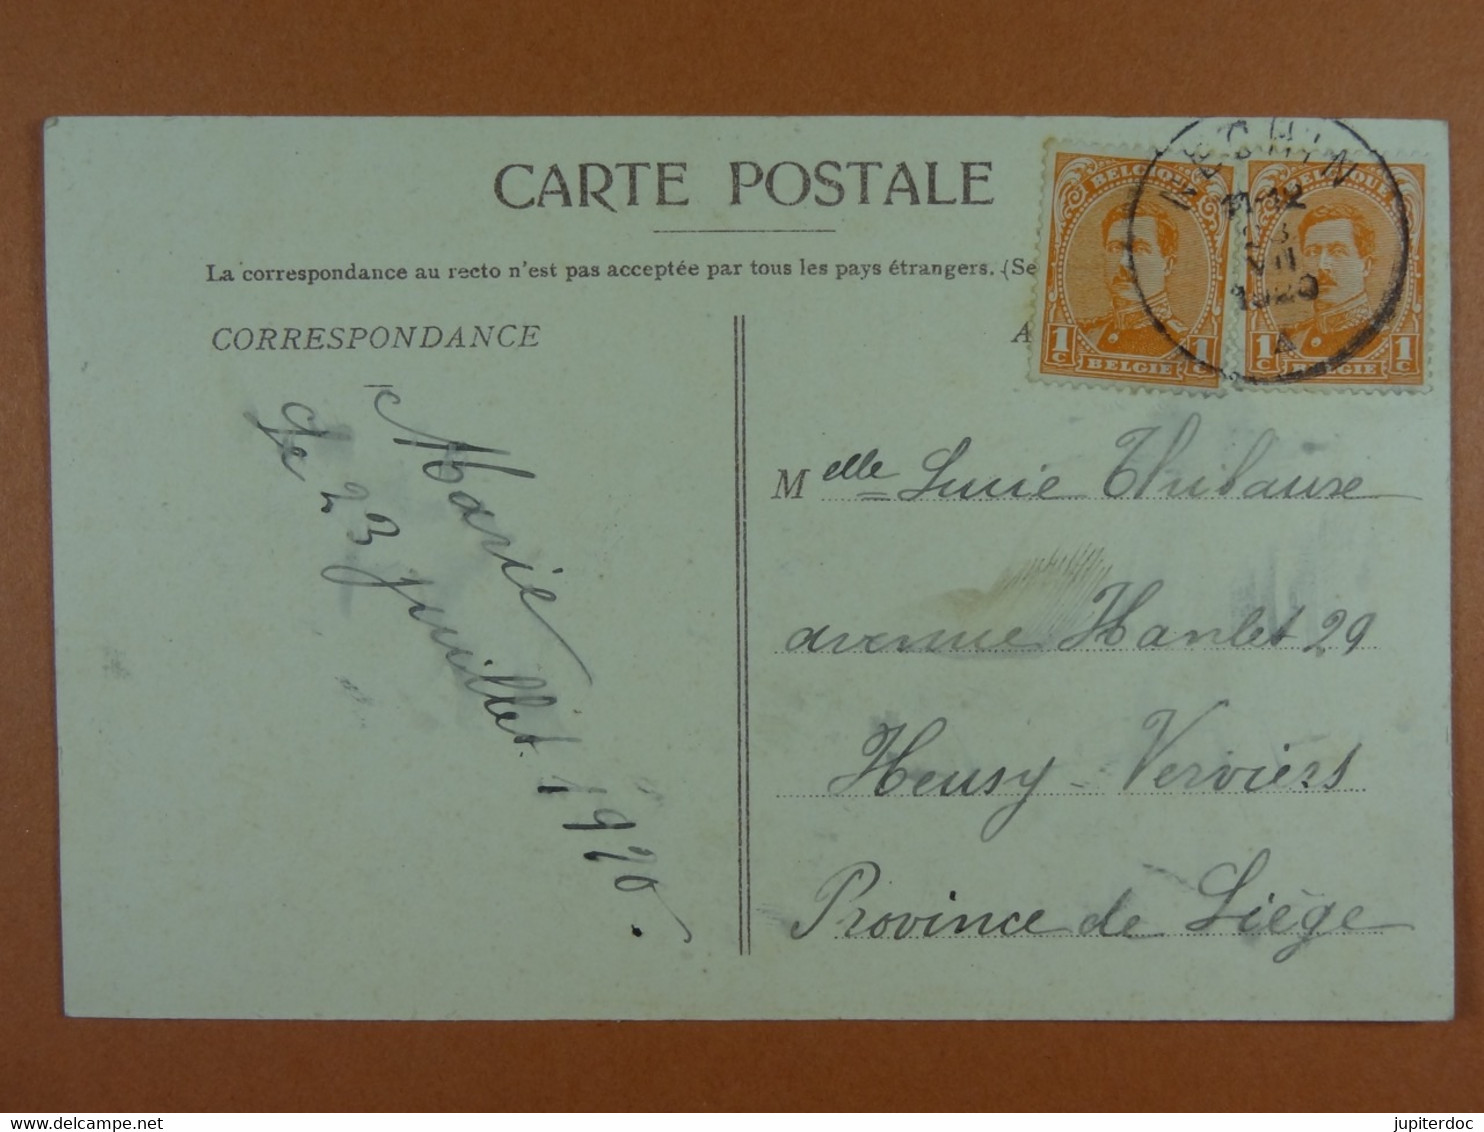 CARTE POSTALE
La correspondance au recto n'est pas acceptée par tous les pays étrangers. (Se
CORRESPONDANCE
A
BELGIQUE
1c 1c
BELGIE
BELGIQUE
1c 1c
BELGIE
NECHIN
11-12
23
VII
1920
A
Marie
le 23 juillet 1920.
Melle Lucie Thibaux
avenue Hanlet 29
Heusy-Verviers
Province de Liège
jupiterdoc
delcampe.net